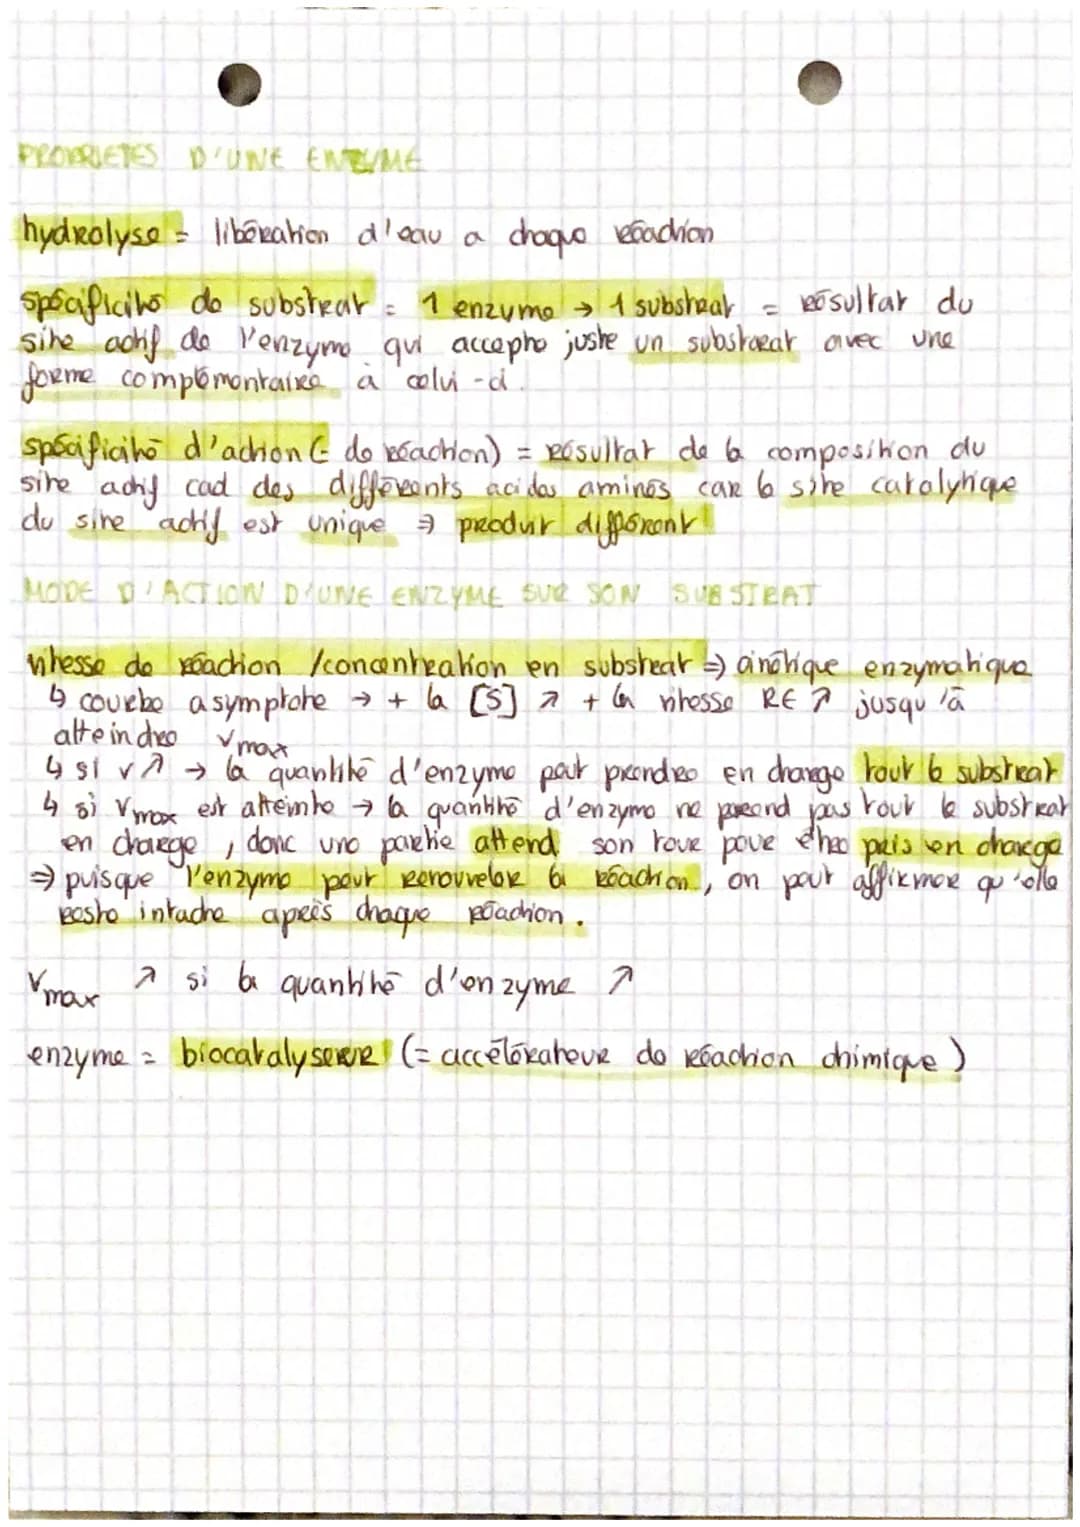 PROPRIETES D'UNE ENZYME
hydrolyse = libération d'eau a chaque réaction
spécificité de substrat = 1 enzyme → 1 substrat = résultat du
site actif de l'enzyme qui accepte juste un substrat avec une
forme complémentaire à celui-ci.
spécificité d'action (= de réaction) = résultat de la composition du
site actif cad des différents acides aminés car le site catalytique
du site actif est unique ⇒ produit différent
MODE D'ACTION D'UNE ENZYME SUR SON SUBSTRAT
vitesse de réaction /concentration en substrat ⇒ cinétique enzymatique
↳ courbe asymptote → + la [S] ↗ + la vitesse RE ↗ jusqu'à
atteindre Vmax
↳ si v↗ → la quantité d'enzyme peut prendre en charge tout le substrat
↳ si Vmax est atteinte → la quantité d'enzyme ne prend pas tout le substrat
en charge, donc une partie attend son tour pour être pris en charge
⇒ puisque l'enzyme peut renouveler la réaction, on peut affirmer qu'elle
reste intacte après chaque réaction.
Vmax ↗ si la quantité d'enzyme ↗
enzyme = biocatalyseur (= accélérateur de réaction chimique)